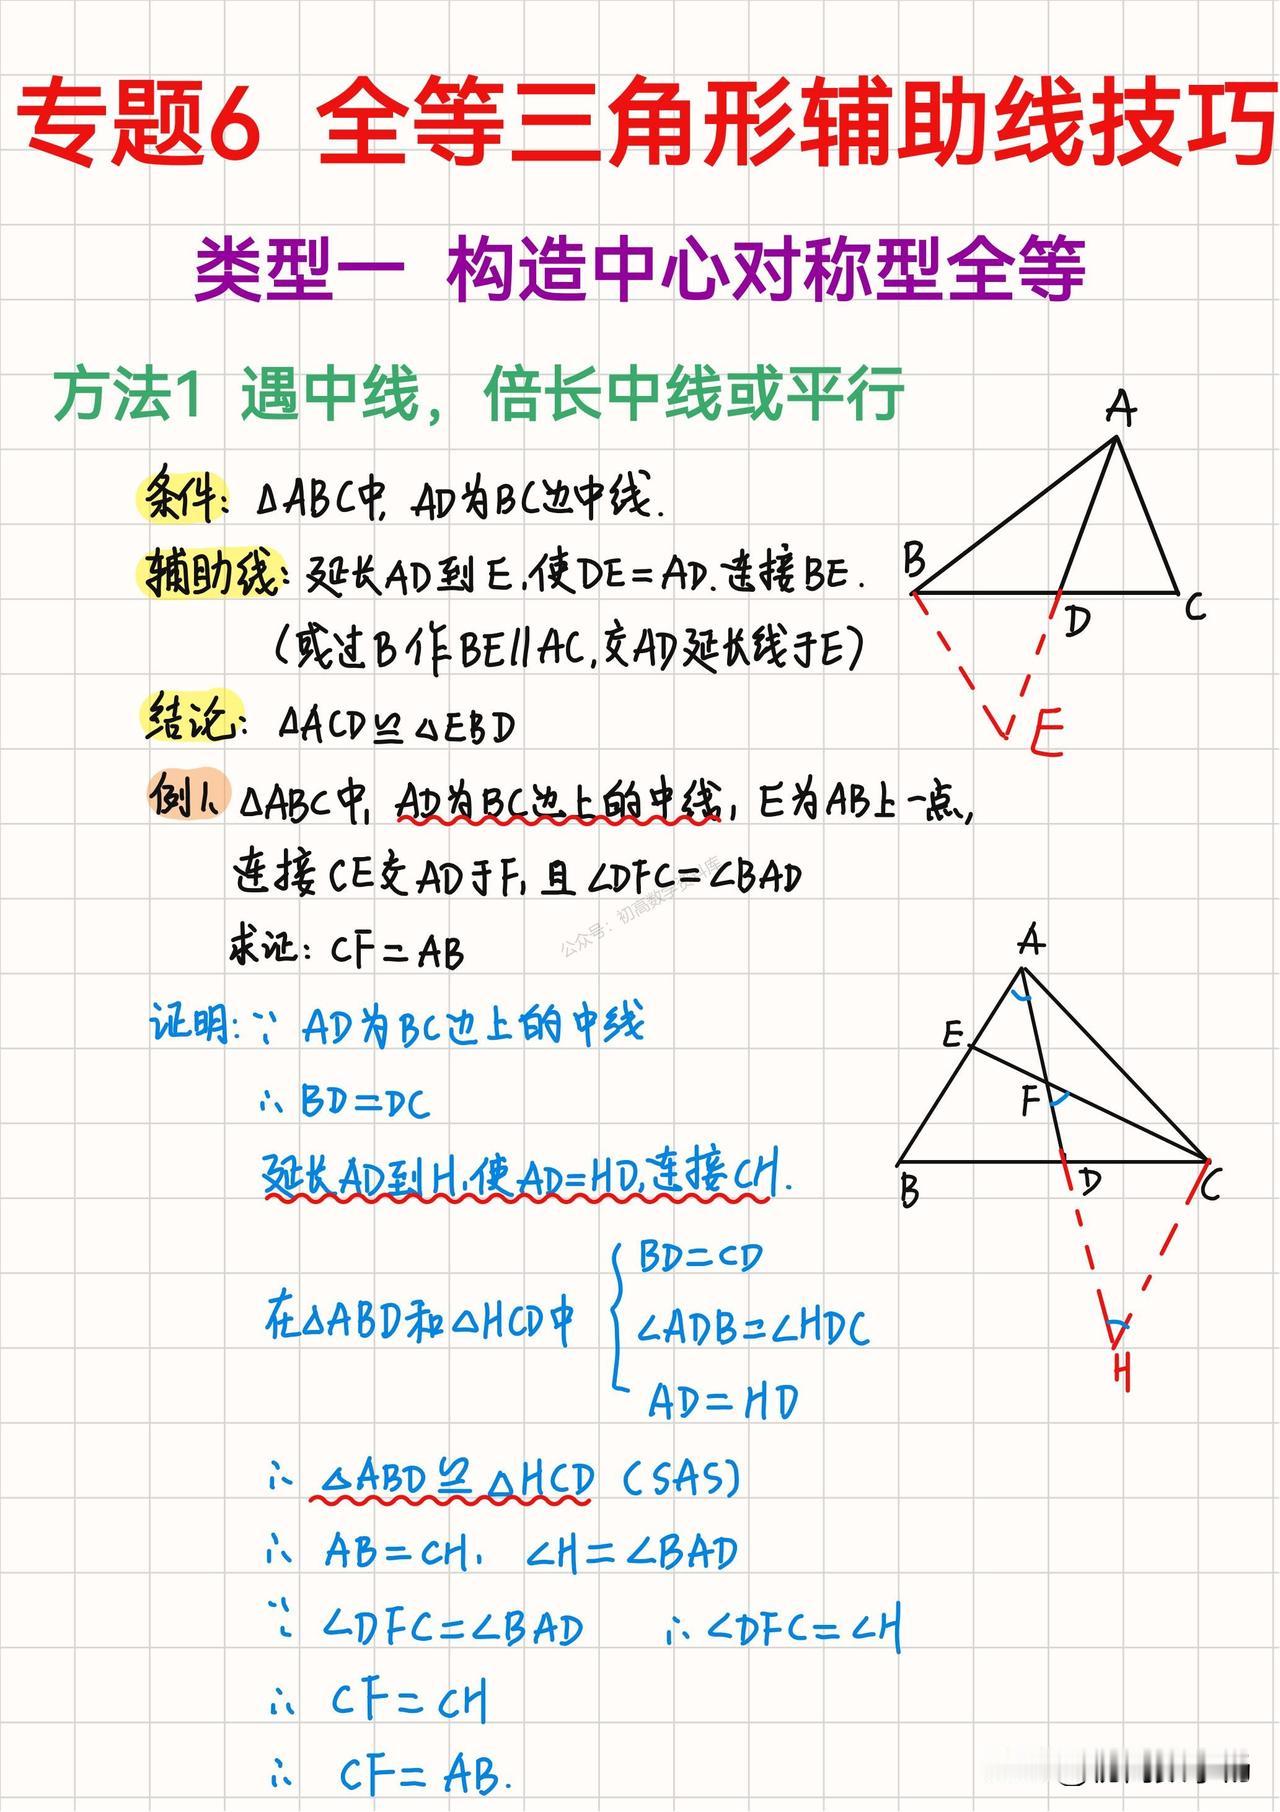 专题6 全等三角形辅助线技巧
类型一 构造中心对称型全等
方法1 遇中线，倍长中线或平行
条件：△ABC中，AD为BC边中线.
辅助线：延长AD到E，使DE=AD.连接BE.
（或过B作BE∥AC，交AD延长线于E）
结论：△ACD≌△EBD
A
B
D
C
E
例1、△ABC中，AD为BC边上的中线，E为AB上一点，
连接CE交AD于F，且∠DFC=∠BAD
求证：CF=AB
公众号：初高数学资料库
证明：∵ AD为BC边上的中线
∴ BD=DC
延长AD到H，使AD=HD，连接CH.
在△ABD和△HCD中
BD=CD
∠ADB=∠HDC
AD=HD
∴ △ABD≌△HCD（SAS）
∴ AB=CH， ∠H=∠BAD
∵ ∠DFC=∠BAD ∴ ∠DFC=∠H
∴ CF=CH
∴ CF=AB.
A
E
F
B
D
C
H